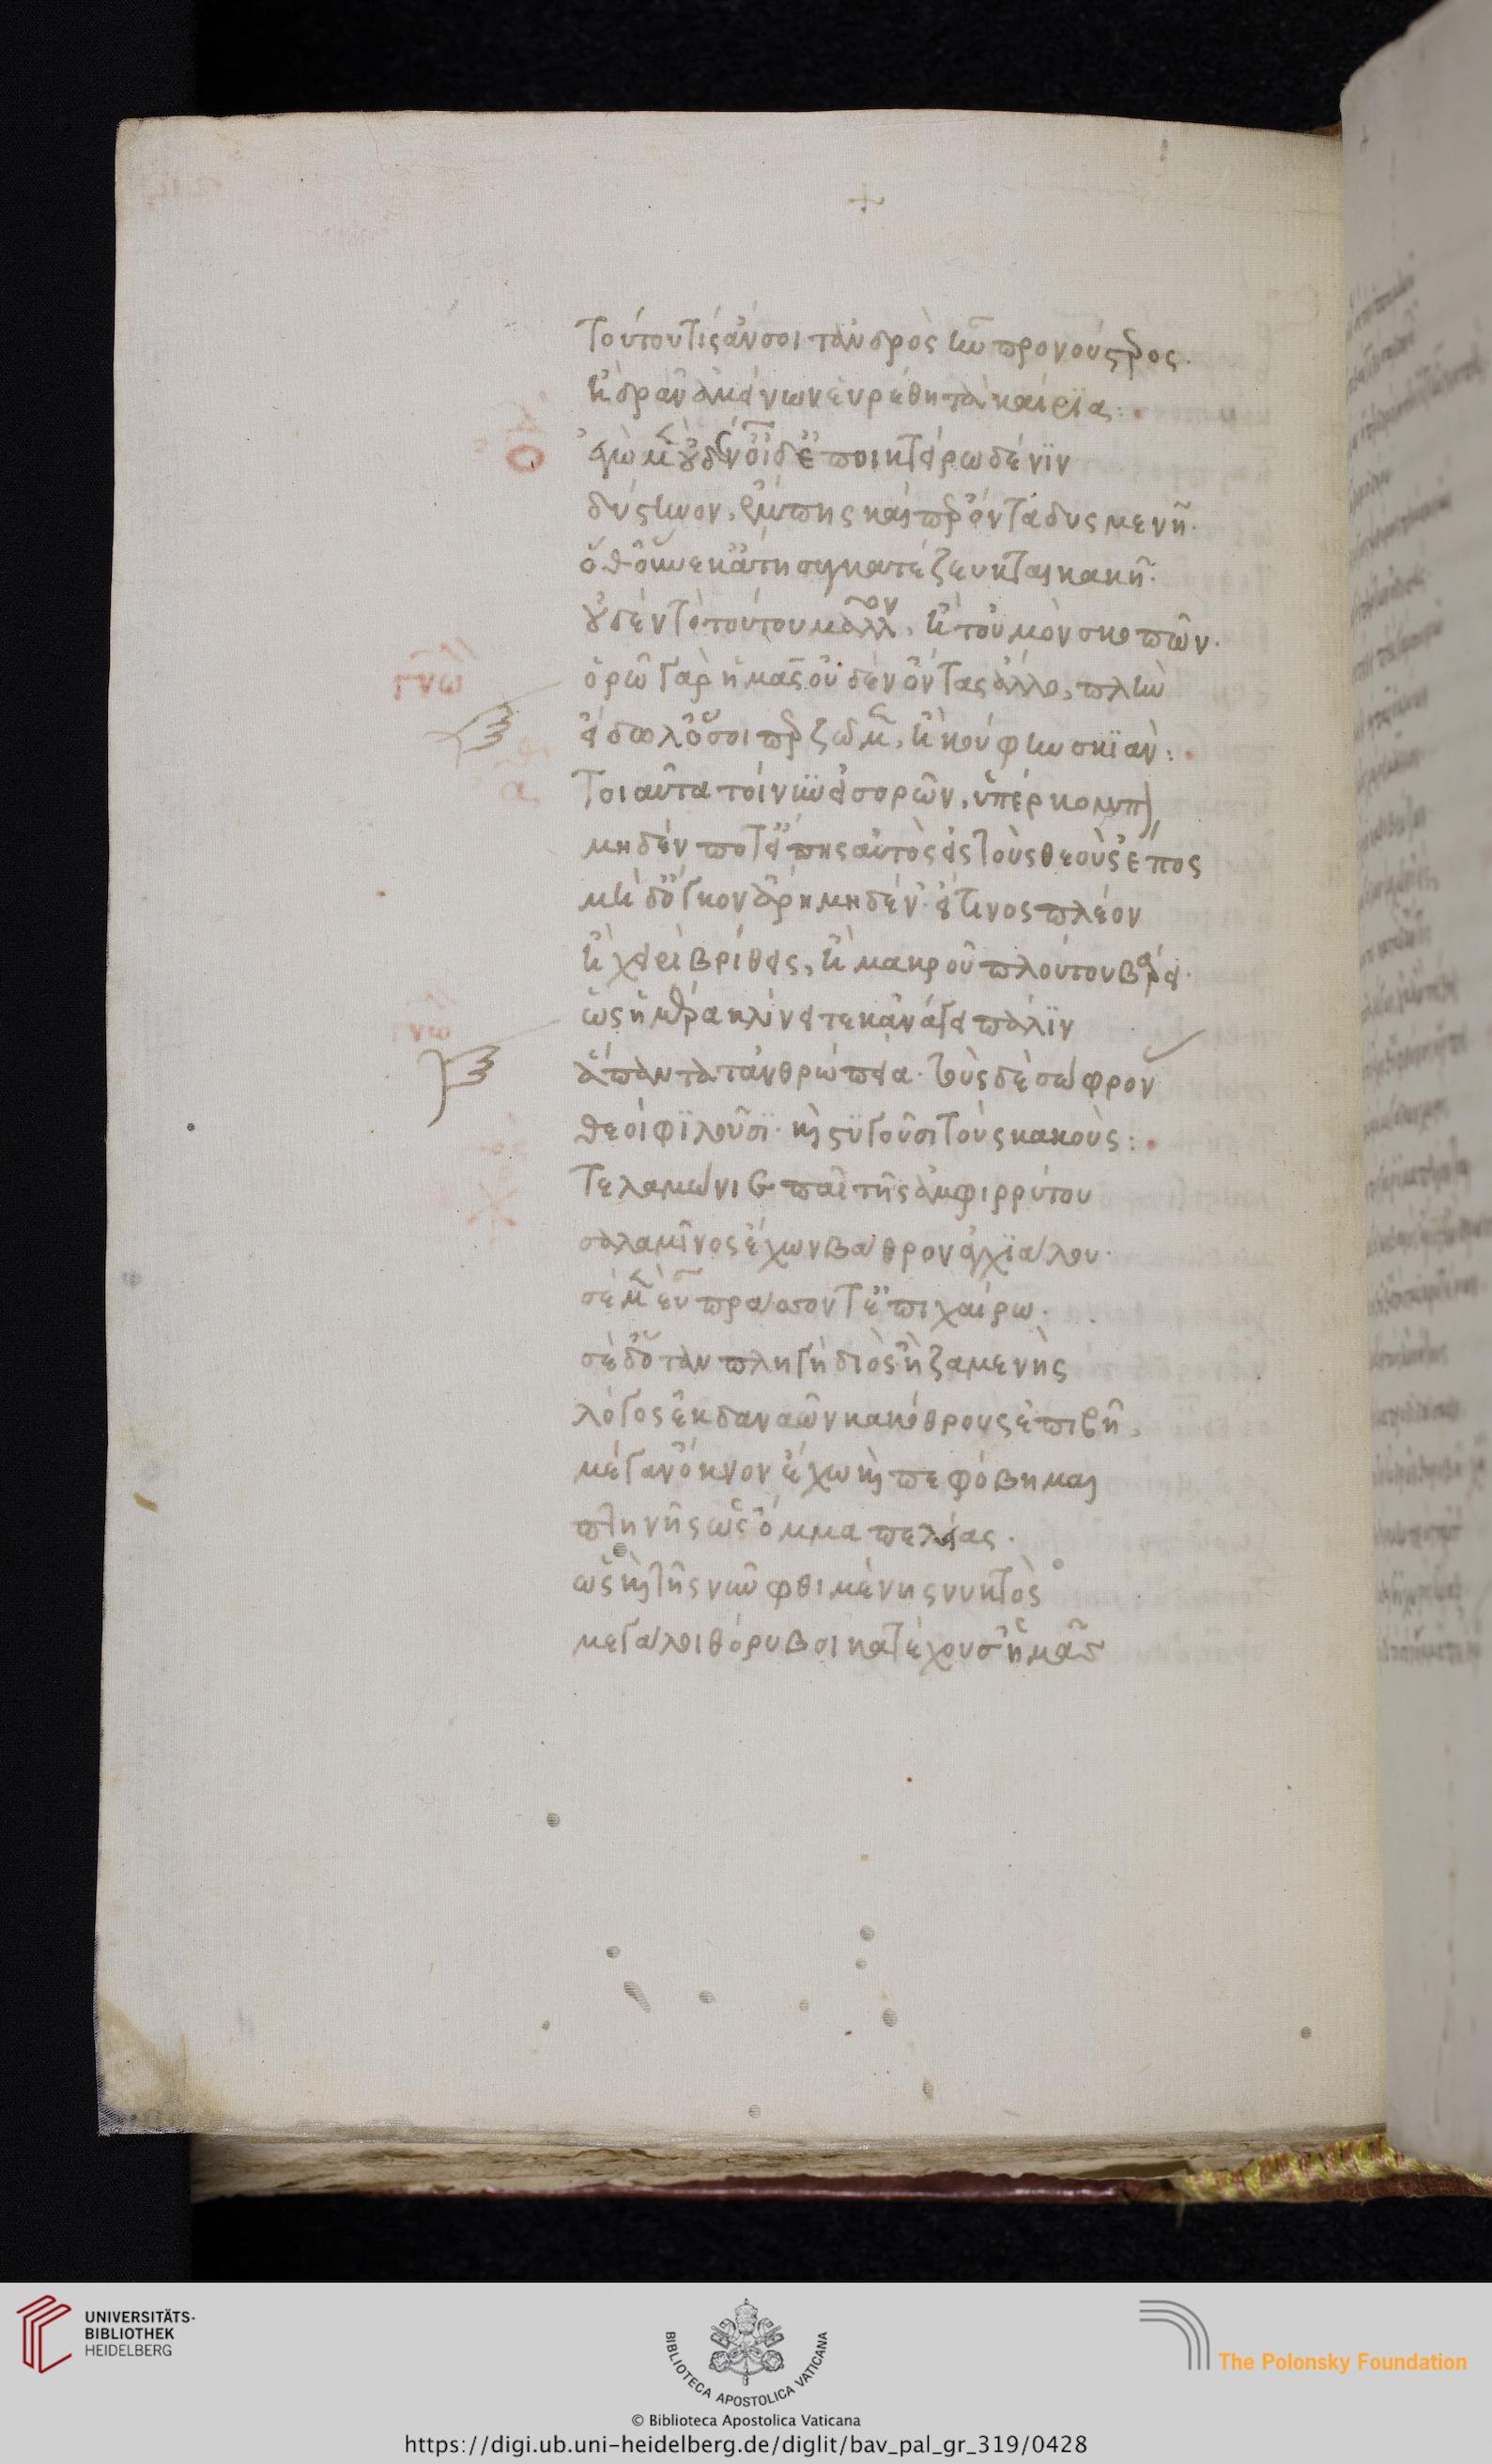 τούτου τίς ἄν σοι τἀνδρὸς ἢ προνούστερος
ἢ δρᾶν ἀμείνων εὑρέθη τὰ καίρϊα:
ἐγὼ μὲν οὐδέν' οἶδ' ἐποικτείρω δέ νϊν
δύστηνον, ἔμπης καίπερ ὄντα δυσμενῆ.
ὁθούνεκ' ἄτη συγκατέζευκται κακῇ.
οὐδὲν τὸ τούτου μᾶλλον, ἢ τοὐμὸν σκοπῶν.
γνω
ὁρῶ γὰρ ἡμᾶς οὐδὲν ὄντας ἄλλο, πλὴν
εἴδωλ' ὅσοιπερ ζῶμεν, ἢ κούφην σκϊάν:
τοιαῦτα τοίνυν εἰσορῶν, ὑπέρκομπον
μηδέν ποτ' εἴπης αὐτὸς εἰς τοὺς θεοὺς ἔπος
μηδ' ὄγκον ἄρη μηδέν' εἴ τινος πλέον
ἢ χειρὶ βρίθεις, ἢ μακροῦ πλούτου βάρει.
γνω
ὡς ἡμέρα κλίνει τε κἀνάγει πάλϊν
ἅπαντα τἀνθρώπεια. τοὺς δὲ σώφρονας
θεοὶ φϊλοῦσϊ. καὶ στυγοῦσι τοὺς κακούς:
χο
Τελαμώνιε παῖ τῆς ἀμφιρρύτου
σαλαμῖνος ἔχων βάθρον ἀγχϊάλου.
σὲ μὲν εὖ πράσσοντ' ἐπιχαίρω.
σὲ δ' ὅταν πληγὴ διὸς ἢ ζαμενὴς
λόγος ἐκ δαναῶν κακόθρους ἐπιβῇ,
μέγαν ὄκνον ἔχω καὶ πεφόβημαι
πτηνῆς ὡς ὄμμα πελείας.
ὡς καὶ τῆς νῦν φθιμένης νυκτὸς
μεγάλοι θόρυβοι κατέχουσ' ἡμᾶς
UNIVERSITÄTS-
BIBLIOTHEK
HEIDELBERG
BIBLIOTECA APOSTOLICA VATICANA
The Polonsky Foundation
© Biblioteca Apostolica Vaticana
https://digi.ub.uni-heidelberg.de/diglit/bav_pal_gr_319/0428